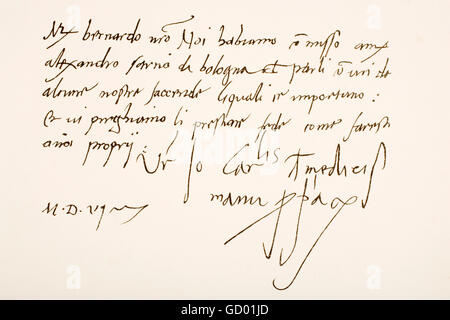 bernardo nro Noi habiamo comisso a
alexandro da bologna parli con voi de
alcune nostre facende liquali importano :
& vi preghiamo li prestare fede come faresti
a noi proprij :
Jo Car lis medices
manu ppa
M.D.
alamy
GD01JD